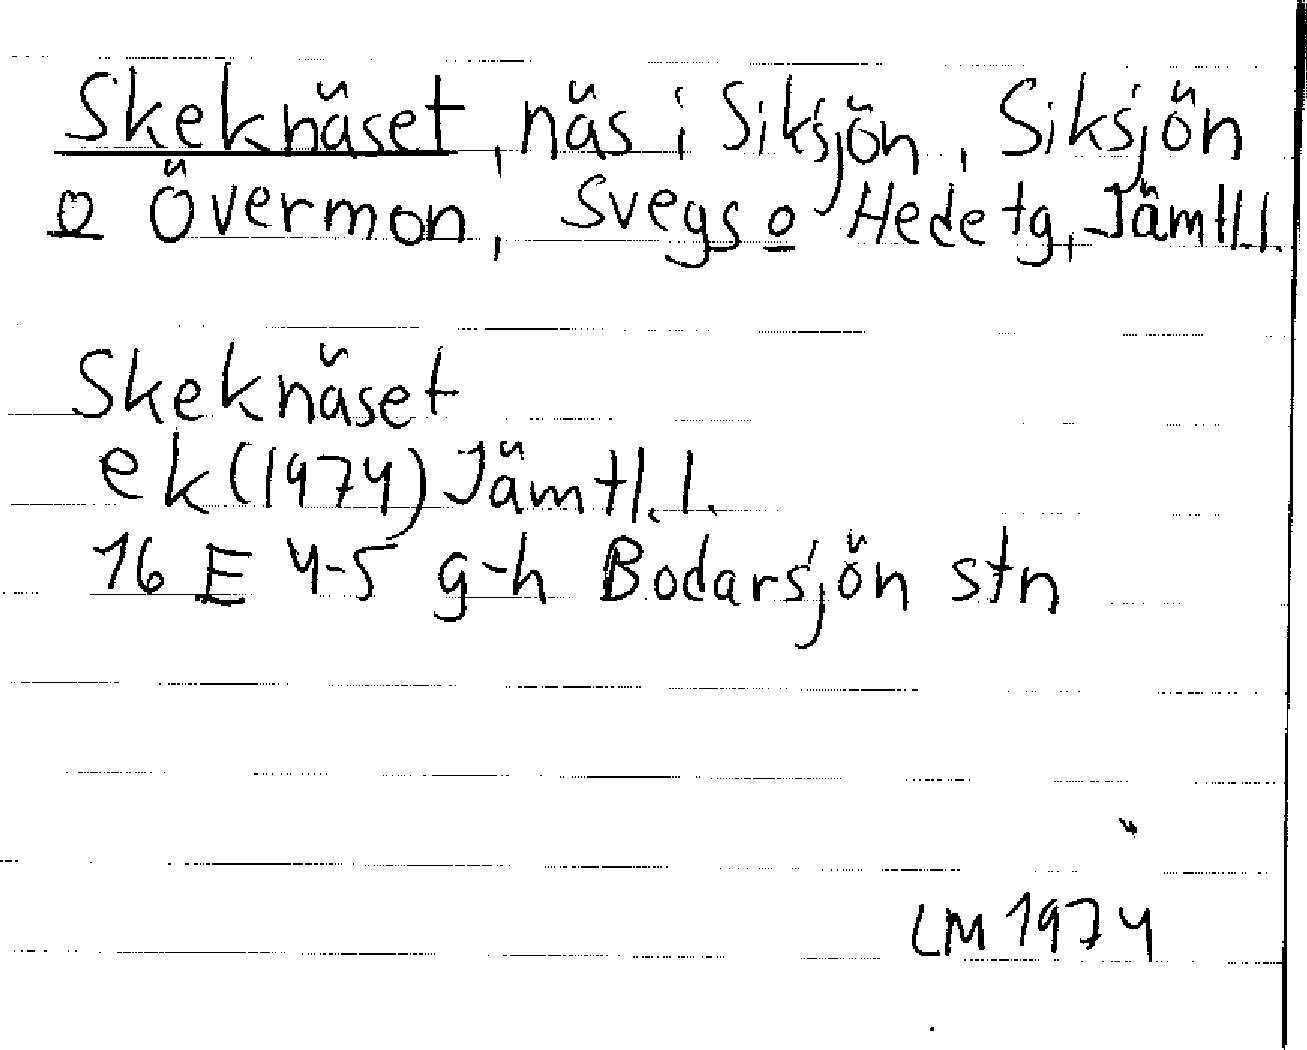 Skeknäset, näs i Siksjön, Siksjön
o Övermon, Svegs o Hede tg, Jämtl.l.
Skeknäset
ek (1974) Jämtl.l.
16 E 4-5 g-h Bodarsjön stn
LM 1974